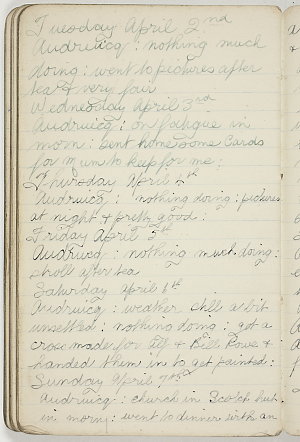 Tuesday April 2nd
Audruicq: nothing much
doing: went to pictures after
tea & very fair
Wednesday April 3rd
Audruicq: on fatigue in
morn: sent home some cards
for Mum to keep for me:
Thursday April 4th
Audruicq: nothing doing: pictures
at night & pretty good:
Friday April 5th
Audruicq: nothing much doing:
stroll after tea
Saturday April 6th
Audruicq: weather still a bit
unsettled: nothing doing: got a
cross made for & Bill Rowe &
handed them in to get painted:
Sunday April 7th
Audruicq: church in Scotch hut
in morng: went to dinner with an